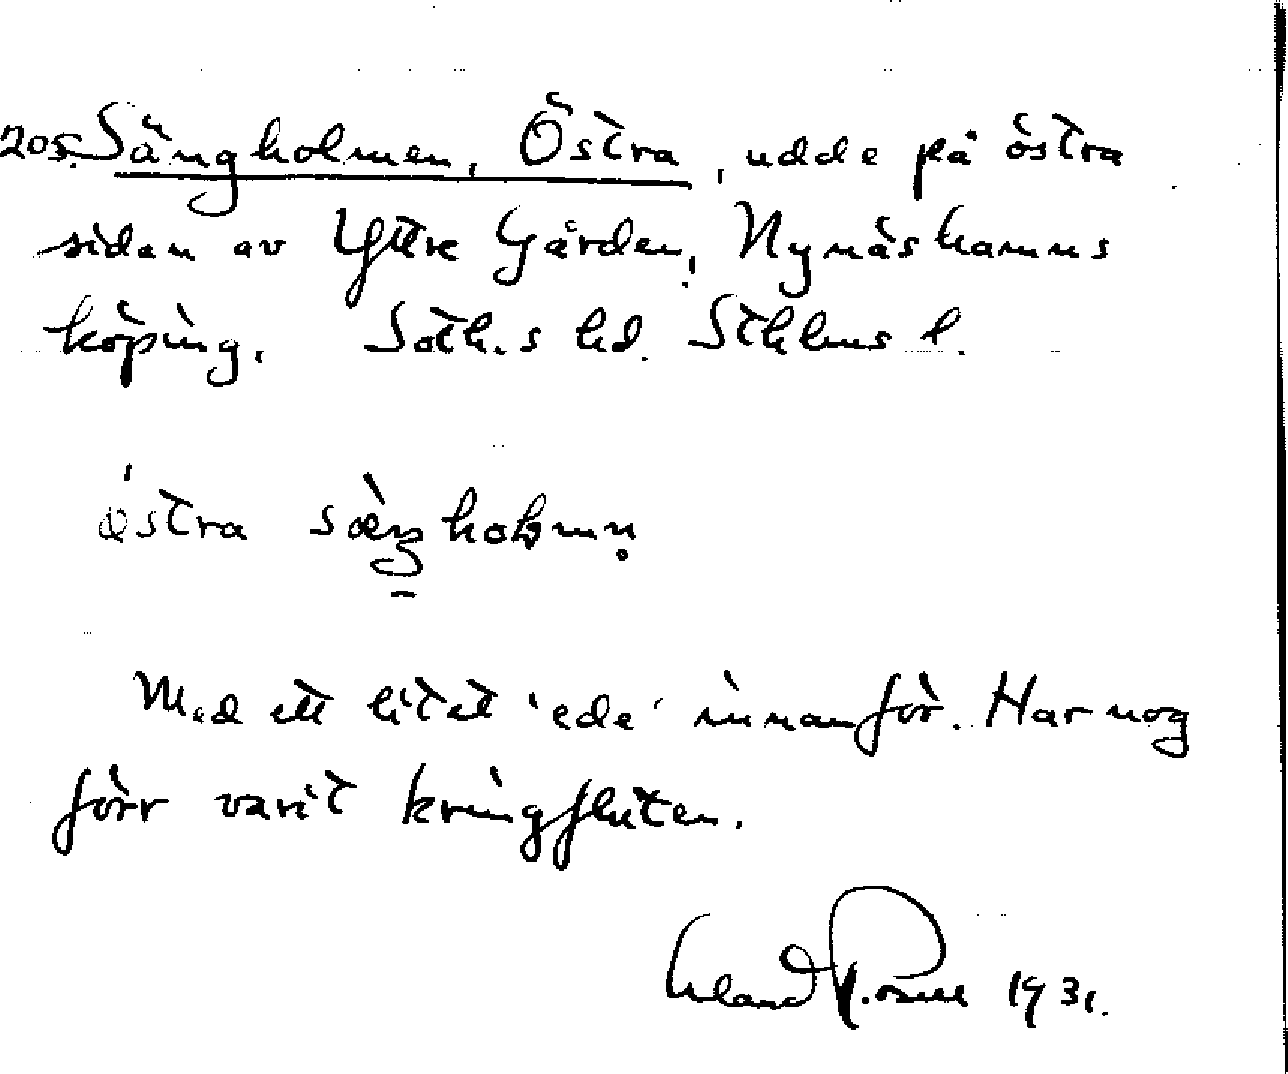 205. Sängholmen, Östra, udde på östra
sidan av Yttre Gården, Nynäshamns
köping. Soth.s hd. Sthlms l.
östra sæŋholmn̥
Med ett litet 'ede' innanför. Har nog
förr varit kringfluten.
Erland Rosell 1931.